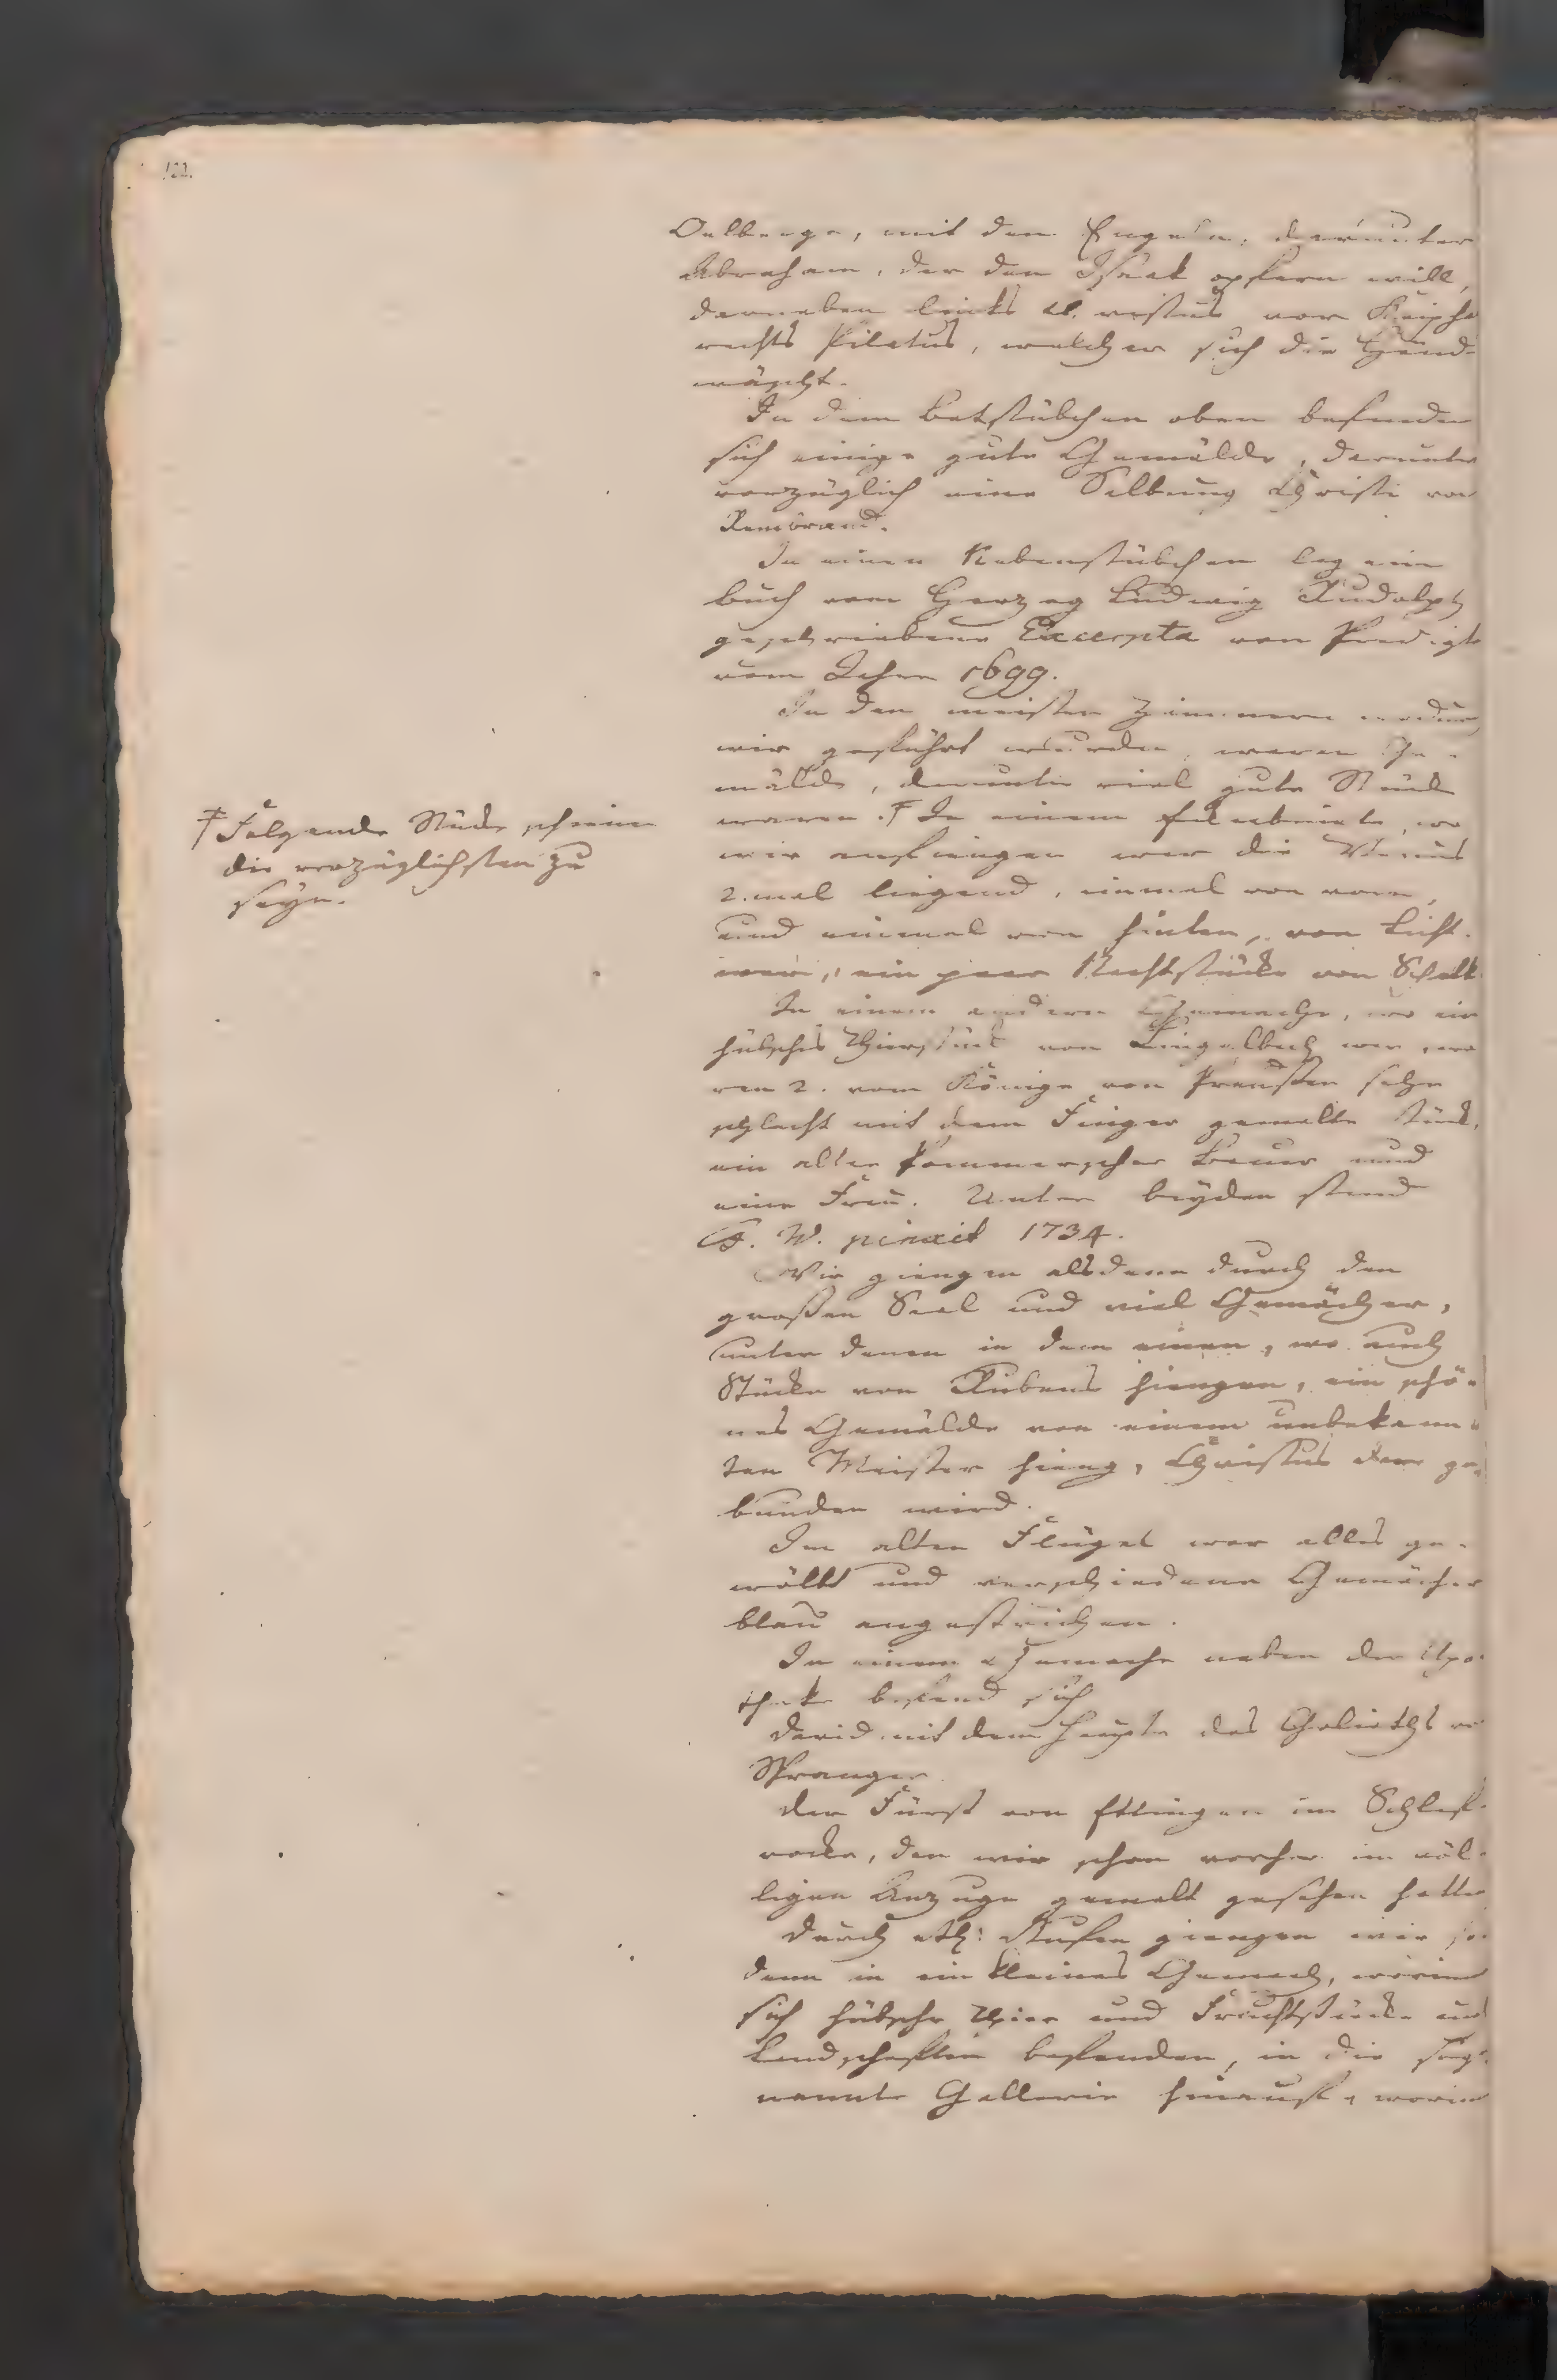 122.
Oelberge, mit den Engeln, darunter
Abraham, der den Isaak opfern will,
darneben links Christus vor Kaipha
rechts Pilatus, welcher sich die Händ
wäscht.
In dem Betstübchen oben befinden
sich einige gute Gemälde, darunter
vorzüglich eine Salbung Christi von
Rembrand.
In einen Nebenstübchen lag ein
buch vom Herzog Ludwig Rudolph
geschriebene Excerpta von Predigt
vom Jahre 1699.
In den meisten Zimmern wodurch
wir geführt wurden, waren Ge-
mälde, darunter viel gute Stück
waren. † In einem, wo
wir anfiengen war die Venus
2. mal liegend, einmal von vorn,
und einmal von hinten, von
ein paar Nachtstücke von Schalk
In einem andern Gemache, wo ein
hübsches Thierstück von Lingelbach war, wa
ren 2. vom Könige von Preußen sehr
schlecht mit dem Finger gemalte Stück,
ein alter Pommerscher Bauer und
eine Frau. Unter beyden stand
F. W. pinxit 1734.
Wir giengen alsdenn durch den
großen Saal und viel Gemächer,
unter denen in dem einen, wo auch
Stücke von Rubens hiengen, ein schö-
nes Gemälde von einem unbekann-
ten Meister hieng, Christus der ge-
bunden wird.
Im alten Flügel war alles ge-
wölbt und verschiedene Gemächer
blau angestrichen.
In einem Gemache neben der Apo-
theke befand sich
David mit dem Haupte des Goliaths von
Spranger
der Fürst von Ettingen im Schlaf-
rocke, den wir schon vorher im völ-
ligen Anzuge gemalt gesehen hatten
Durch etl: Stufen giengen wir so
dann in ein kleines Gemach, worinn
sich hübsche Thier und Fruchtstücke und
Landschaften befanden, in die soge
nannte Gallerie hinauf, worinn
† Folgende Stücke scheinen
die vorzüglichsten zu
seyn.